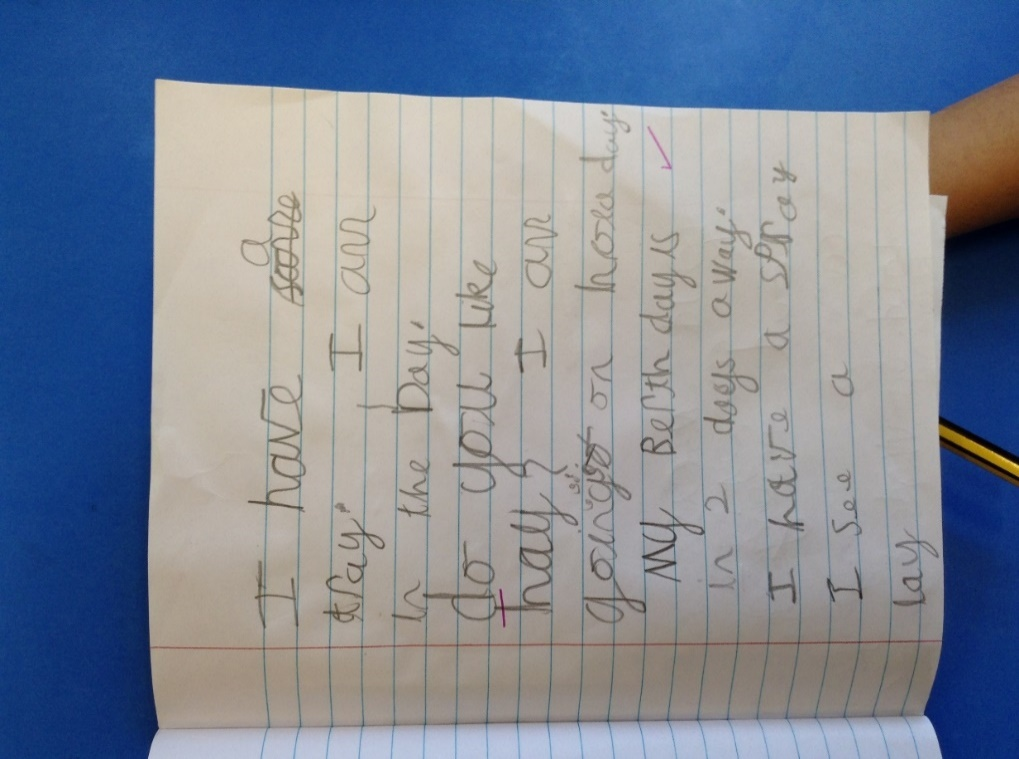 I have a
tray. I am
in the bay.
do you like
hay? I am
going on holeday.
My Berth day is
in 2 days away.
I have a spray
I see a
lay